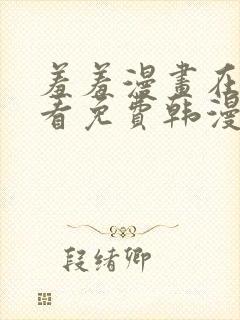 羞羞漫畫在
看免費韩漫
段绪卿